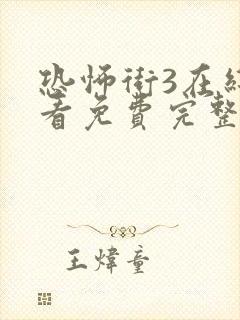 恐怖街3在线
看免费完整
王炜童